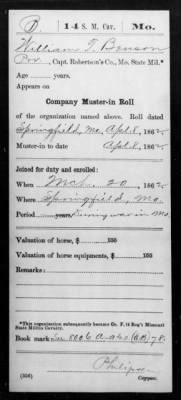 14 S. M. Cav. Mo.
William T. Benson
Pvt., Capt. Robertson's Co., Mo. State Mil.*
Age years.
Appears on
Company Muster-in Roll
of the organization named above. Roll dated
Springfield, Mo, April 8, 1862
Muster-in to date April 8, 1862
Joined for duty and enrolled:
When Mch. 20, 1862
Where Springfield, Mo.
Period years, During war in Mo.
Valuation of horse, $ 100
Valuation of horse equipments, $ 100
Remarks:
*This organization subsequently became Co. F, 14 Reg't Missouri
State Militia Cavalry.
Book mark:
(356) Copyist.